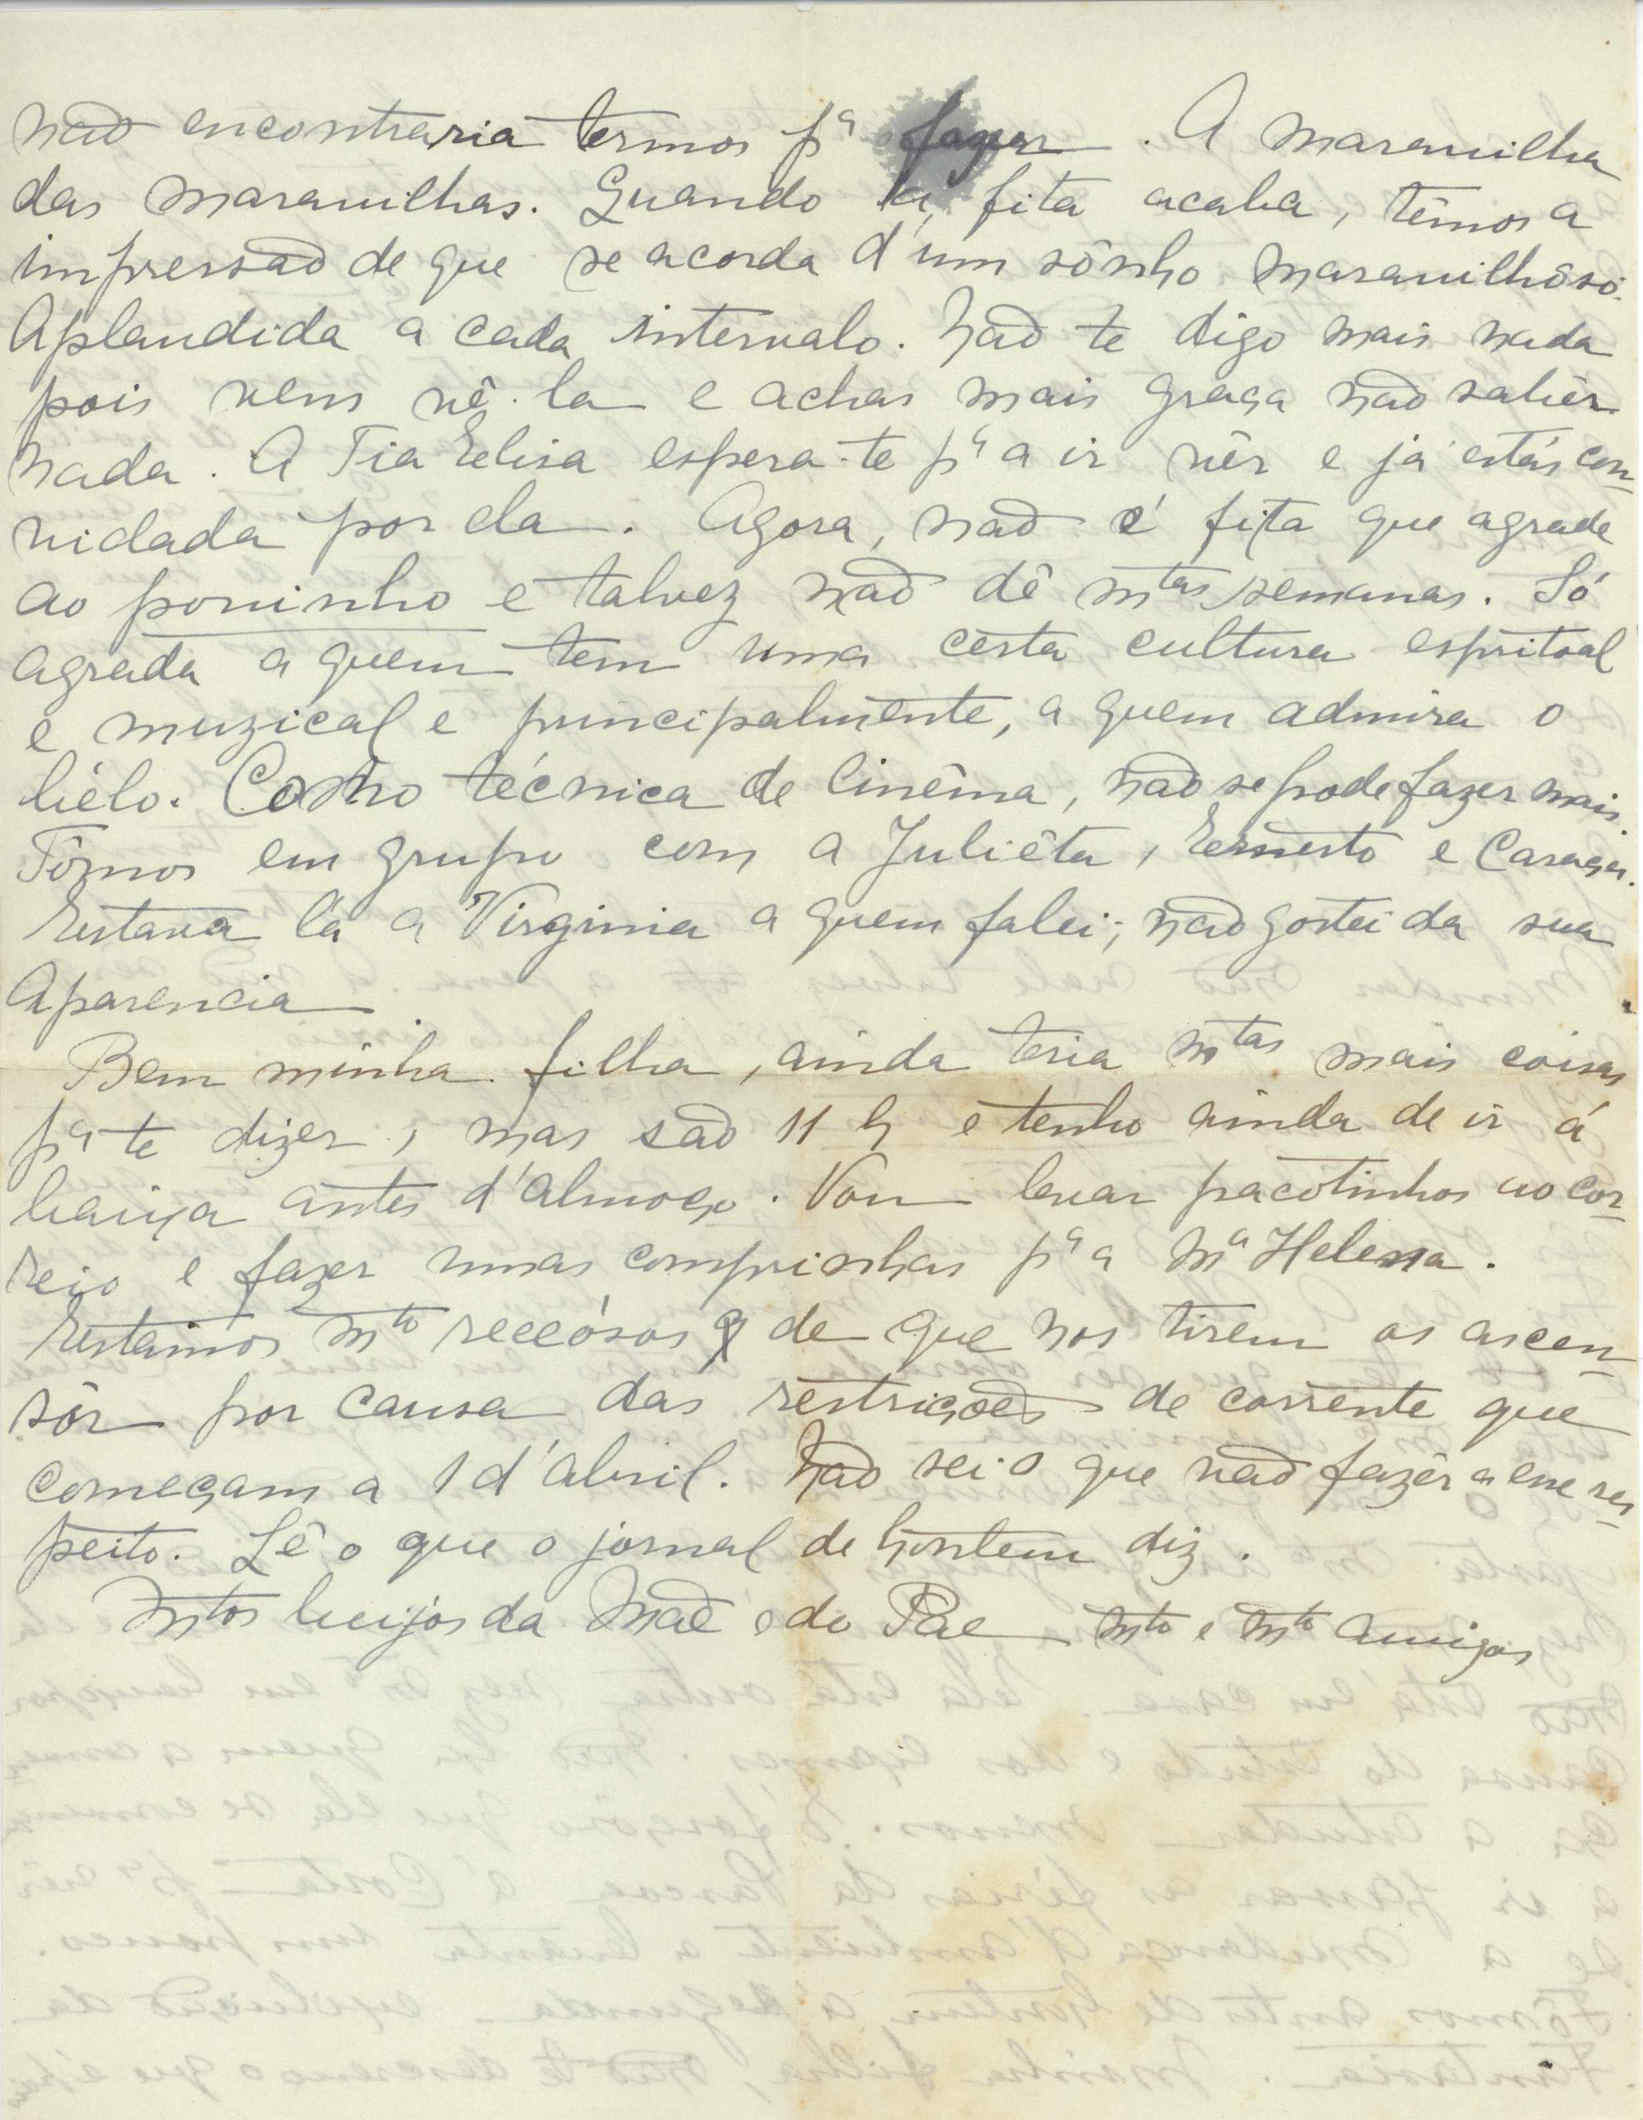 não encontraria termos pª fazer. A maravilha
das maravilhas. Quando a fita acaba, têmos a
impressão de que se acorda d'um sônho maravilhôso.
Aplaudida a cada intervalo. Não te digo mais nada
pois vens vê-la e achas mais graça não sabêr
nada. A Tia Elisa espera-te pª a ir vêr e já estás con-
vidada por ela. Agora, não é fita que agrade
ao povinho e talvez não dê mtas semanas. Só
agrada a quem tem uma certa cultura espritoal
e muzical e principalmente, a quem admira o
bélo. Como técnica de cinêma, não se pode fazer mais.
Fômos em grupo com a Juliêta, Ernesto e Caraça.
Estava lá a Virginia a quem falei; não gostei da sua
aparencia.
Bem minha filha, ainda teria mtas mais coisas
pª te dizer, mas são 11 h e tenho ainda de ir á
baixa antes d'almoço. Vou levar pacotinhos ao cor-
reio e fazer umas comprinhas pª a Mª Helena.
Estamos mto receósos de que nos tirem os ascen-
sôr por causa das restrições de corrente que
começam a 1 d'abril. Não sei o que vão fazêr a esse res-
peito. Lê o que o jornal de hontem diz.
Mtos beijos da Mãe e do Pae mto e mto amigos